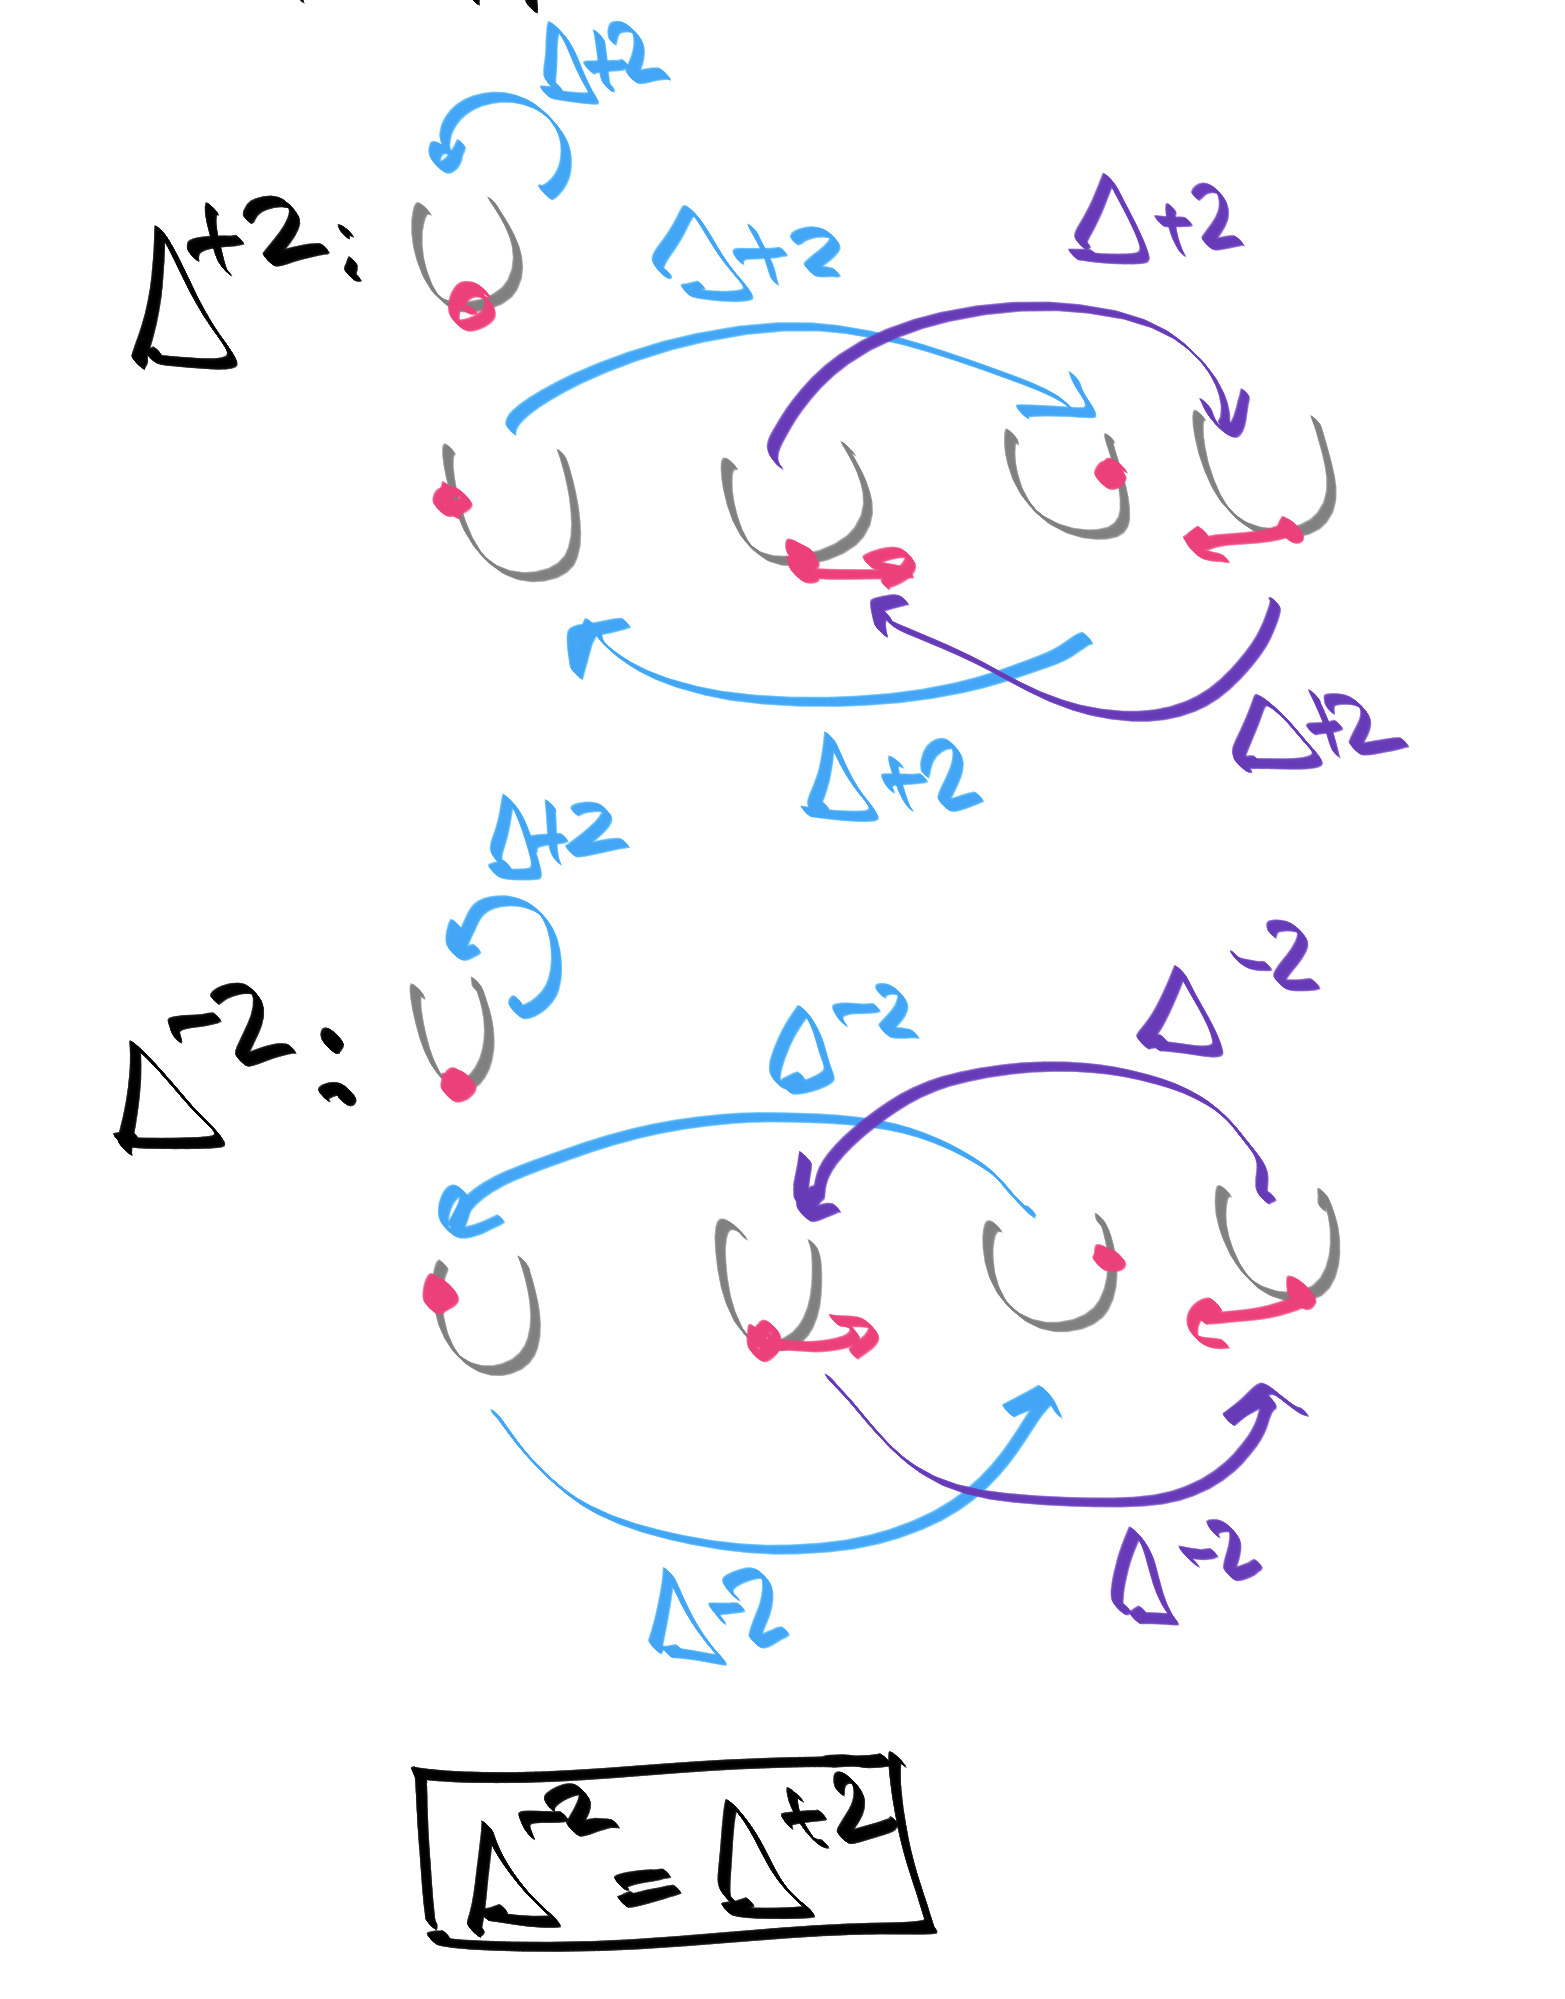 Δ+2
Δ+2:
Δ+2
Δ+2
Δ+2
Δ+2
Δ+2
Δ-2
Δ-2:
Δ-2
Δ-2
Δ-2
Δ-2 = Δ+2